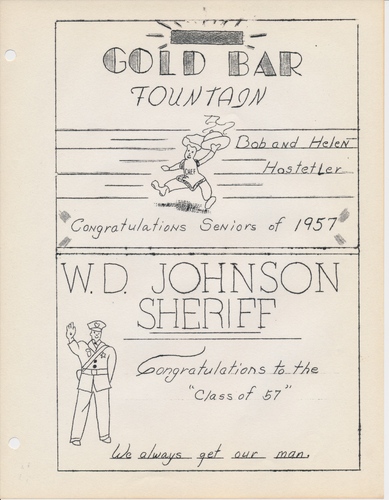 GOLD BAR
FOUNTAIN
Bob and Helen
Hostetler
CHEF
Congratulations Seniors of 1957
W.D. JOHNSON
SHERIFF
Congratulations to the
"Class of 57"
We always get our man.